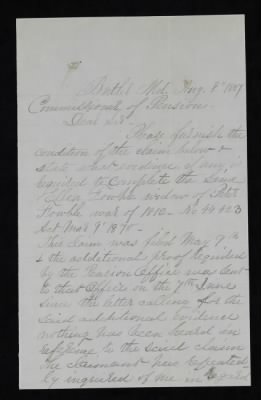 Balto Md. Aug. 8" 1887
Commissioner of Pensions
Dear Sir
Please furnish the
condition of the claim below &
state what evidence if any is
required to complete the same
Fowble widow of Peter
Fowble war of 1812 - No
Act Mar 9" 1878 -
This claim was filed May 9th
& the additional proof required
by the Pension Office was sent
to that Office on the 7th June
since the letter calling for the
said additional Evidence
nothing has been heard in
reference to the said claim
The claimant has repeated
ly inquired of me in regard